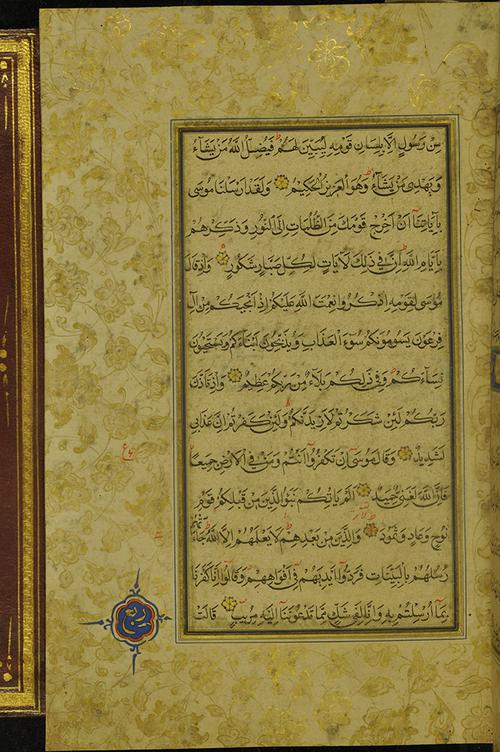 مِنْ رَسُولٍ اِلَّا بِلِسَانِ قَوْمِهِ لِيُبَيِّنَ لَهُمْ فَيُضِلُّ اللّٰهُ مَنْ يَشَآءُ
وَيَهْدِى مَنْ يَشَآءُ وَهُوَ الْعَزِيزُ الْحَكِيمُ وَلَقَدْ اَرْسَلْنَا مُوسٰى
بِاٰيَاتِنَآ اَنْ اَخْرِجْ قَوْمَكَ مِنَ الظُّلُمَاتِ اِلَى النُّورِ وَذَكِّرْهُمْ
بِاَيَّامِ اللّٰهِ اِنَّ فِى ذٰلِكَ لَاٰيَاتٍ لِكُلِّ صَبَّارٍ شَكُورٍ وَاِذْ قَالَ
مُوسٰى لِقَوْمِهِ اذْكُرُوا نِعْمَتَ اللّٰهِ عَلَيْكُمْ اِذْ اَنْجٰيكُمْ مِنْ اٰلِ
فِرْعَوْنَ يَسُومُونَكُمْ سُوٓءَ الْعَذَابِ وَيُذَبِّحُونَ اَبْنَآءَكُمْ وَيَسْتَحْيُونَ
نِسَآءَكُمْ وَفِى ذٰلِكُمْ بَلَآءٌ مِنْ رَبِّكُمْ عَظِيمٌ وَاِذْ تَاَذَّنَ
رَبُّكُمْ لَئِنْ شَكَرْتُمْ لَاَزِيدَنَّكُمْ وَلَئِنْ كَفَرْتُمْ اِنَّ عَذَابِى
لَشَدِيدٌ وَقَالَ مُوسٰٓى اِنْ تَكْفُرُوٓا اَنْتُمْ وَمَنْ فِى الْاَرْضِ جَمِيعًا
فَاِنَّ اللّٰهَ لَغَنِىٌّ حَمِيدٌ اَلَمْ يَاْتِكُمْ نَبَؤُا الَّذِينَ مِنْ قَبْلِكُمْ قَوْمِ
نُوحٍ وَعَادٍ وَثَمُودَ وَالَّذِينَ مِنْ بَعْدِهِمْ لَا يَعْلَمُهُمْ اِلَّا اللّٰهُ جَآءَتْهُمْ
رُسُلُهُمْ بِالْبَيِّنَاتِ فَرَدُّوٓا اَيْدِيَهُمْ فِٓى اَفْوَاهِهِمْ وَقَالُوٓا اِنَّا كَفَرْنَا
بِمَآ اُرْسِلْتُمْ بِهِ وَاِنَّا لَفِى شَكٍّ مِمَّا تَدْعُونَنَآ اِلَيْهِ مُرِيبٍ قَالَتْ